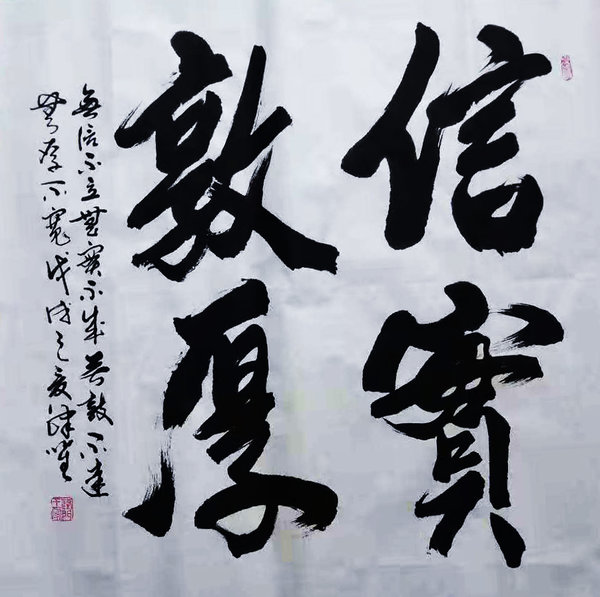 信實
敦厚
無信不立無實不成無敦不達
無厚不寬戊戌之夏